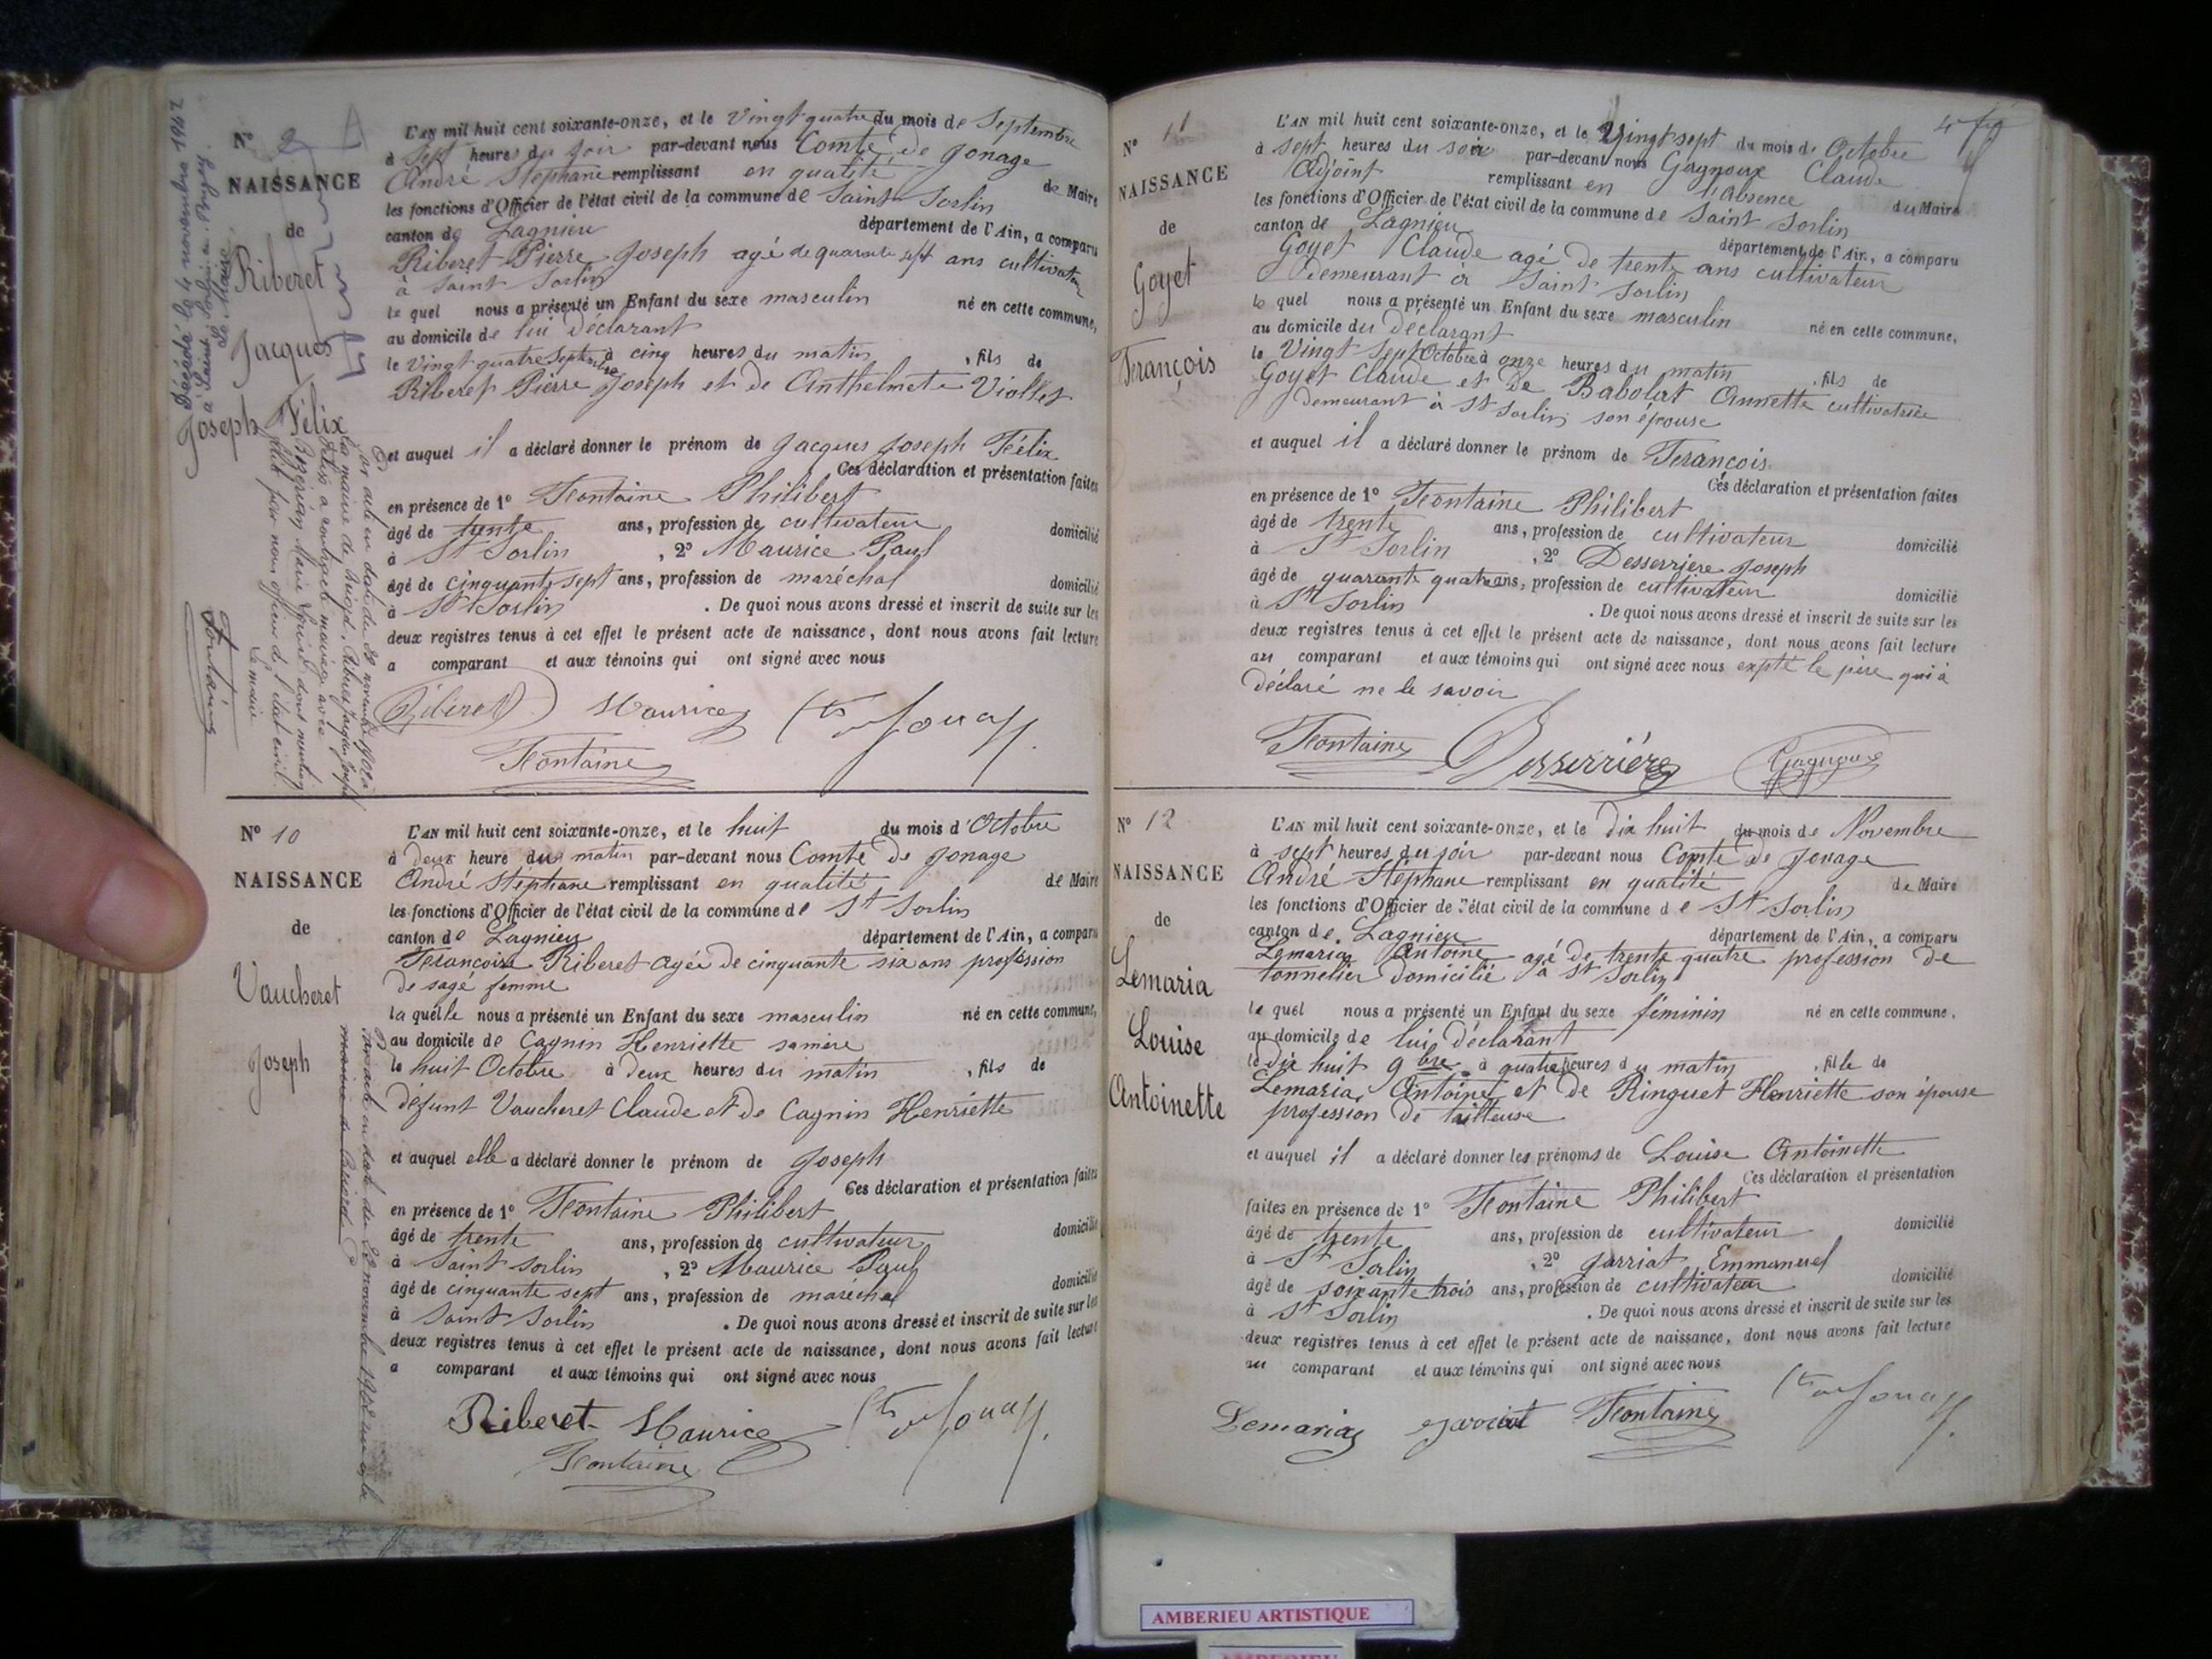 N° 9
NAISSANCE
de
Riberet
Jacques
Joseph Félix
Décédé le 4 novembre 1942
à Saint Sorlin en Bugey.
Le Maire
L'AN mil huit cent soixante-onze, et le Vingt quatre du mois de Septembre
à Sept heures du soir par-devant nous Comte de Jonage
André Stéphane remplissant en qualité de Maire
les fonctions d'Officier de l'état civil de la commune de Saint Sorlin
canton de Lagnieu département de l'Ain, a comparu
Riberet Pierre Joseph agé de quarante sept ans cultivateur
à Saint Sorlin
le quel nous a présenté un Enfant du sexe masculin né en cette commune,
au domicile de lui déclarant
le Vingt quatre Septembre à cinq heures du matin, fils de
Riberet Pierre Joseph et de Anthelmete Viollet
et auquel il a déclaré donner le prénom de Jacques Joseph Félix
Ces déclaration et présentation faites
en présence de 1° Fontaine Philibert
âgé de trente ans, profession de cultivateur domicilié
à St Sorlin, 2° Maurice Paul
âgé de cinquante sept ans, profession de maréchal domicilié
à St Sorlin. De quoi nous avons dressé et inscrit de suite sur les
deux registres tenus à cet effet le présent acte de naissance, dont nous avons fait lecture
a comparant et aux témoins qui ont signé avec nous
Riberet Maurice Cte de Jonage
Fontaine
Par acte en date du novembre
la mairie de Riberet Jacques Joseph
Félix a contracté mariage avec
Marie Louise dont mention
faite par nous officier de l'état civil
Le maire
Fontaine
N° 10
NAISSANCE
de
Vaucheret
Joseph
L'AN mil huit cent soixante-onze, et le huit du mois d'Octobre
à deux heure du matin par-devant nous Comte de Jonage
André Stéphane remplissant en qualité de Maire
les fonctions d'Officier de l'état civil de la commune de St Sorlin
canton de Lagnieu département de l'Ain, a comparu
Francoise Riberet agée de cinquante six ans profession
de sage femme
la quelle nous a présenté un Enfant du sexe masculin né en cette commune,
au domicile de Cagnin Henriette sa mère
le huit Octobre à deux heures du matin, fils de
défunt Vaucheret Claude et de Cagnin Henriette
et auquel elle a déclaré donner le prénom de Joseph
Ces déclaration et présentation faites
en présence de 1° Fontaine Philibert
âgé de trente ans, profession de cultivateur domicilié
à Saint Sorlin, 2° Maurice Paul
âgé de cinquante sept ans, profession de maréchal domicilié
à Saint Sorlin. De quoi nous avons dressé et inscrit de suite sur les
deux registres tenus à cet effet le présent acte de naissance, dont nous avons fait lecture
a comparant et aux témoins qui ont signé avec nous
Riberet Maurice Cte de Jonage
Fontaine
Par acte en date du 22 novembre
mairie de
N° 11
NAISSANCE
de
Goyet
François
L'AN mil huit cent soixante-onze, et le Vingt sept du mois de Octobre
à sept heures du soir par-devant nous Gagnoux Claude
Adjoint remplissant en l'absence du Maire
les fonctions d'Officier de l'état civil de la commune de Saint Sorlin
canton de Lagnieu département de l'Ain, a comparu
Goyet Claude agé de trente ans cultivateur
demeurant à Saint Sorlin
le quel nous a présenté un Enfant du sexe masculin né en cette commune,
au domicile du déclarant
le Vingt Sept Octobre à onze heures du matin, fils de
Goyet Claude et de Babolat Annette cultivatrice
demeurant à St Sorlin son épouse
et auquel il a déclaré donner le prénom de François
Ces déclaration et présentation faites
en présence de 1° Fontaine Philibert
âgé de trente ans, profession de cultivateur domicilié
à St Sorlin, 2° Desserriere Joseph
âgé de quarante quatre ans, profession de cultivateur domicilié
à St Sorlin. De quoi nous avons dressé et inscrit de suite sur les
deux registres tenus à cet effet le présent acte de naissance, dont nous avons fait lecture
au comparant et aux témoins qui ont signé avec nous expté le père qui a
déclaré ne le savoir
Fontaine Desserrière Gagnoux
N° 12
NAISSANCE
de
Lemaria
Louise
Antoinette
L'AN mil huit cent soixante-onze, et le dix huit du mois de Novembre
à sept heures du soir par-devant nous Comte de Jonage
André Stéphane remplissant en qualité de Maire
les fonctions d'Officier de l'état civil de la commune de St Sorlin
canton de Lagnieu département de l'Ain, a comparu
Lemaria Antoine agé de trente quatre profession de
tonnelier domicilié à St Sorlin
le quel nous a présenté un Enfant du sexe féminin né en cette commune,
au domicile de lui déclarant
le dix huit 9bre à quatre heures du matin, fille de
Lemaria Antoine et de Ringuet Henriette son épouse
profession de tailleuse
et auquel il a déclaré donner les prénoms de Louise Antoinette
Ces déclaration et présentation
faites en présence de 1° Fontaine Philibert
âgé de trente ans, profession de cultivateur domicilié
à St Sorlin, 2° Jarriat Emmanuel
âgé de soixante trois ans, profession de cultivateur domicilié
à St Sorlin. De quoi nous avons dressé et inscrit de suite sur les
deux registres tenus à cet effet le présent acte de naissance, dont nous avons fait lecture
au comparant et aux témoins qui ont signé avec nous
Lemaria Jarriat Fontaine Cte de Jonage
AMBERIEU ARTISTIQUE
AMBERIEU